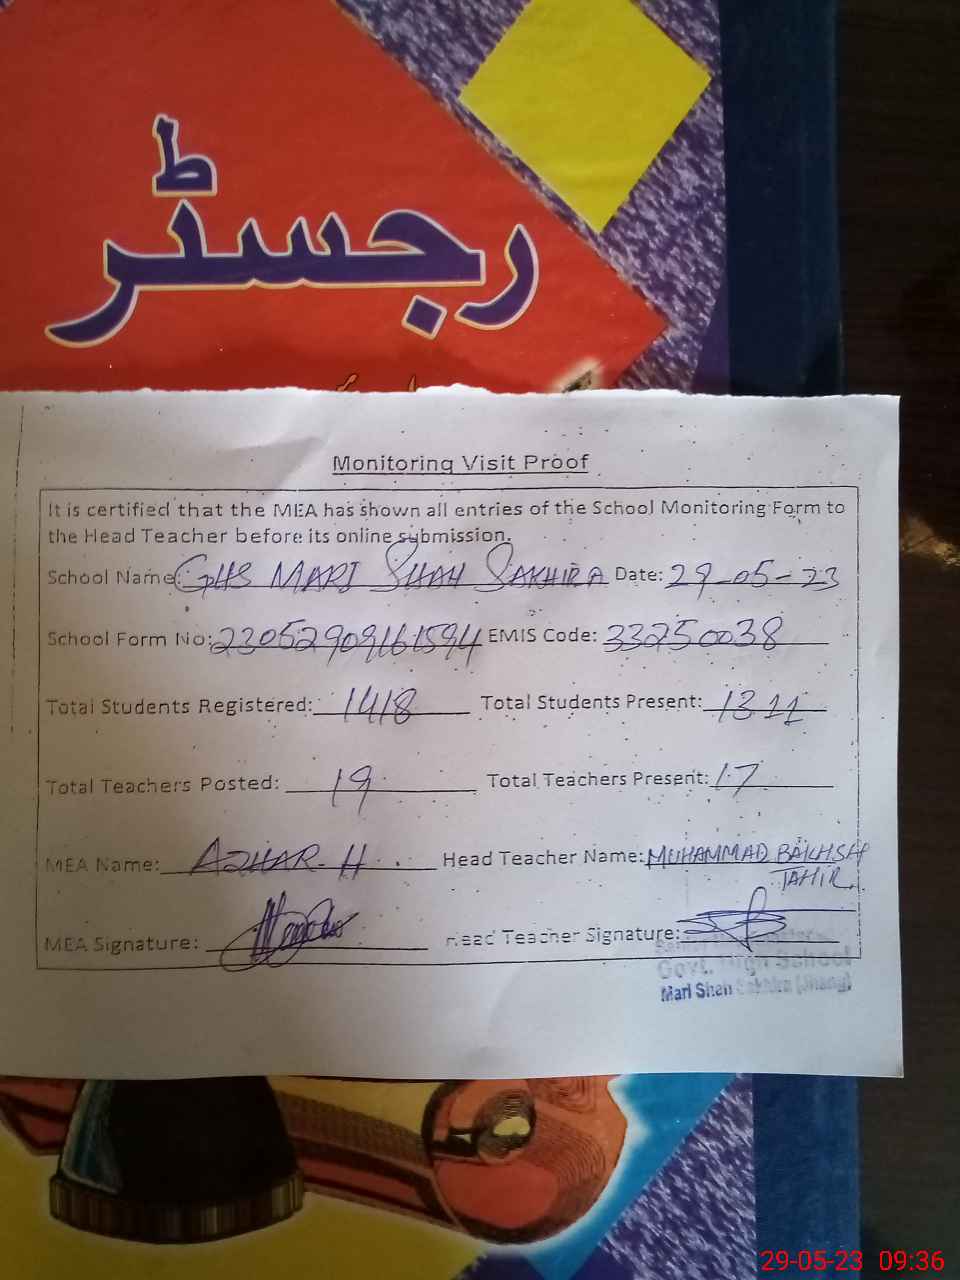 رجسٹر
Monitoring Visit Proof
It is certified that the MEA has shown all entries of the School Monitoring Form to
the Head Teacher before its online submission.
School Name: GHS MARI SHAH SAKHIRA Date: 29-05-23
School Form No: 23052909161594 EMIS Code: 33250038
Total Students Registered: 1418 Total Students Present: 1311
Total Teachers Posted: 19 Total Teachers Present: 17
MEA Name: AZHAR H. Head Teacher Name: MUHAMMAD BAKHSH
TAHIR
MEA Signature: Head Teacher Signature:
Govt. High School
Mari Shah Sakhira (Jhang)
29-05-23 09:36